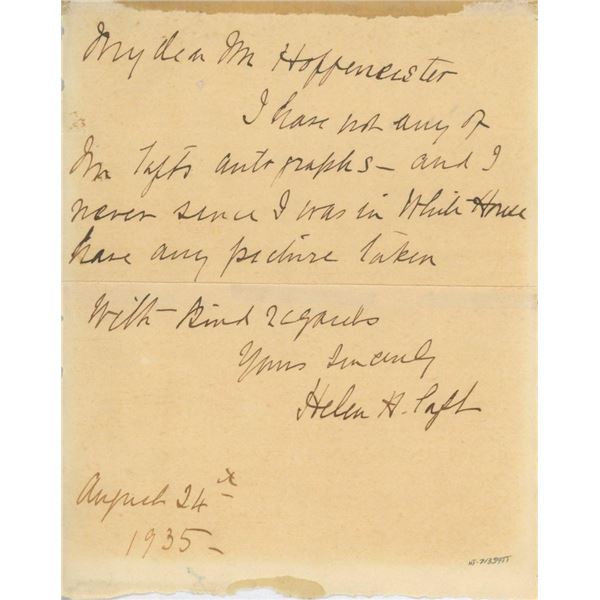 My dear Mr Hoffmeister
I have not any of
Mr Tafts autographs – and I
never since I was in White House
have any picture taken
With Kind regards
Yours Sincerely
Helen H. Taft
August 24th
1935 –